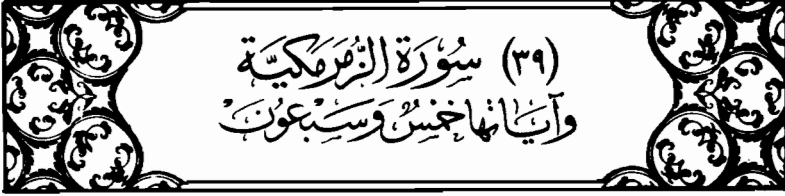 (٣٩) سُوْرَةُ الزُّمَرِ مَكِيَّة
وَآيَاتُهَا خَمْسٌ وَسَبْعُوْنَ